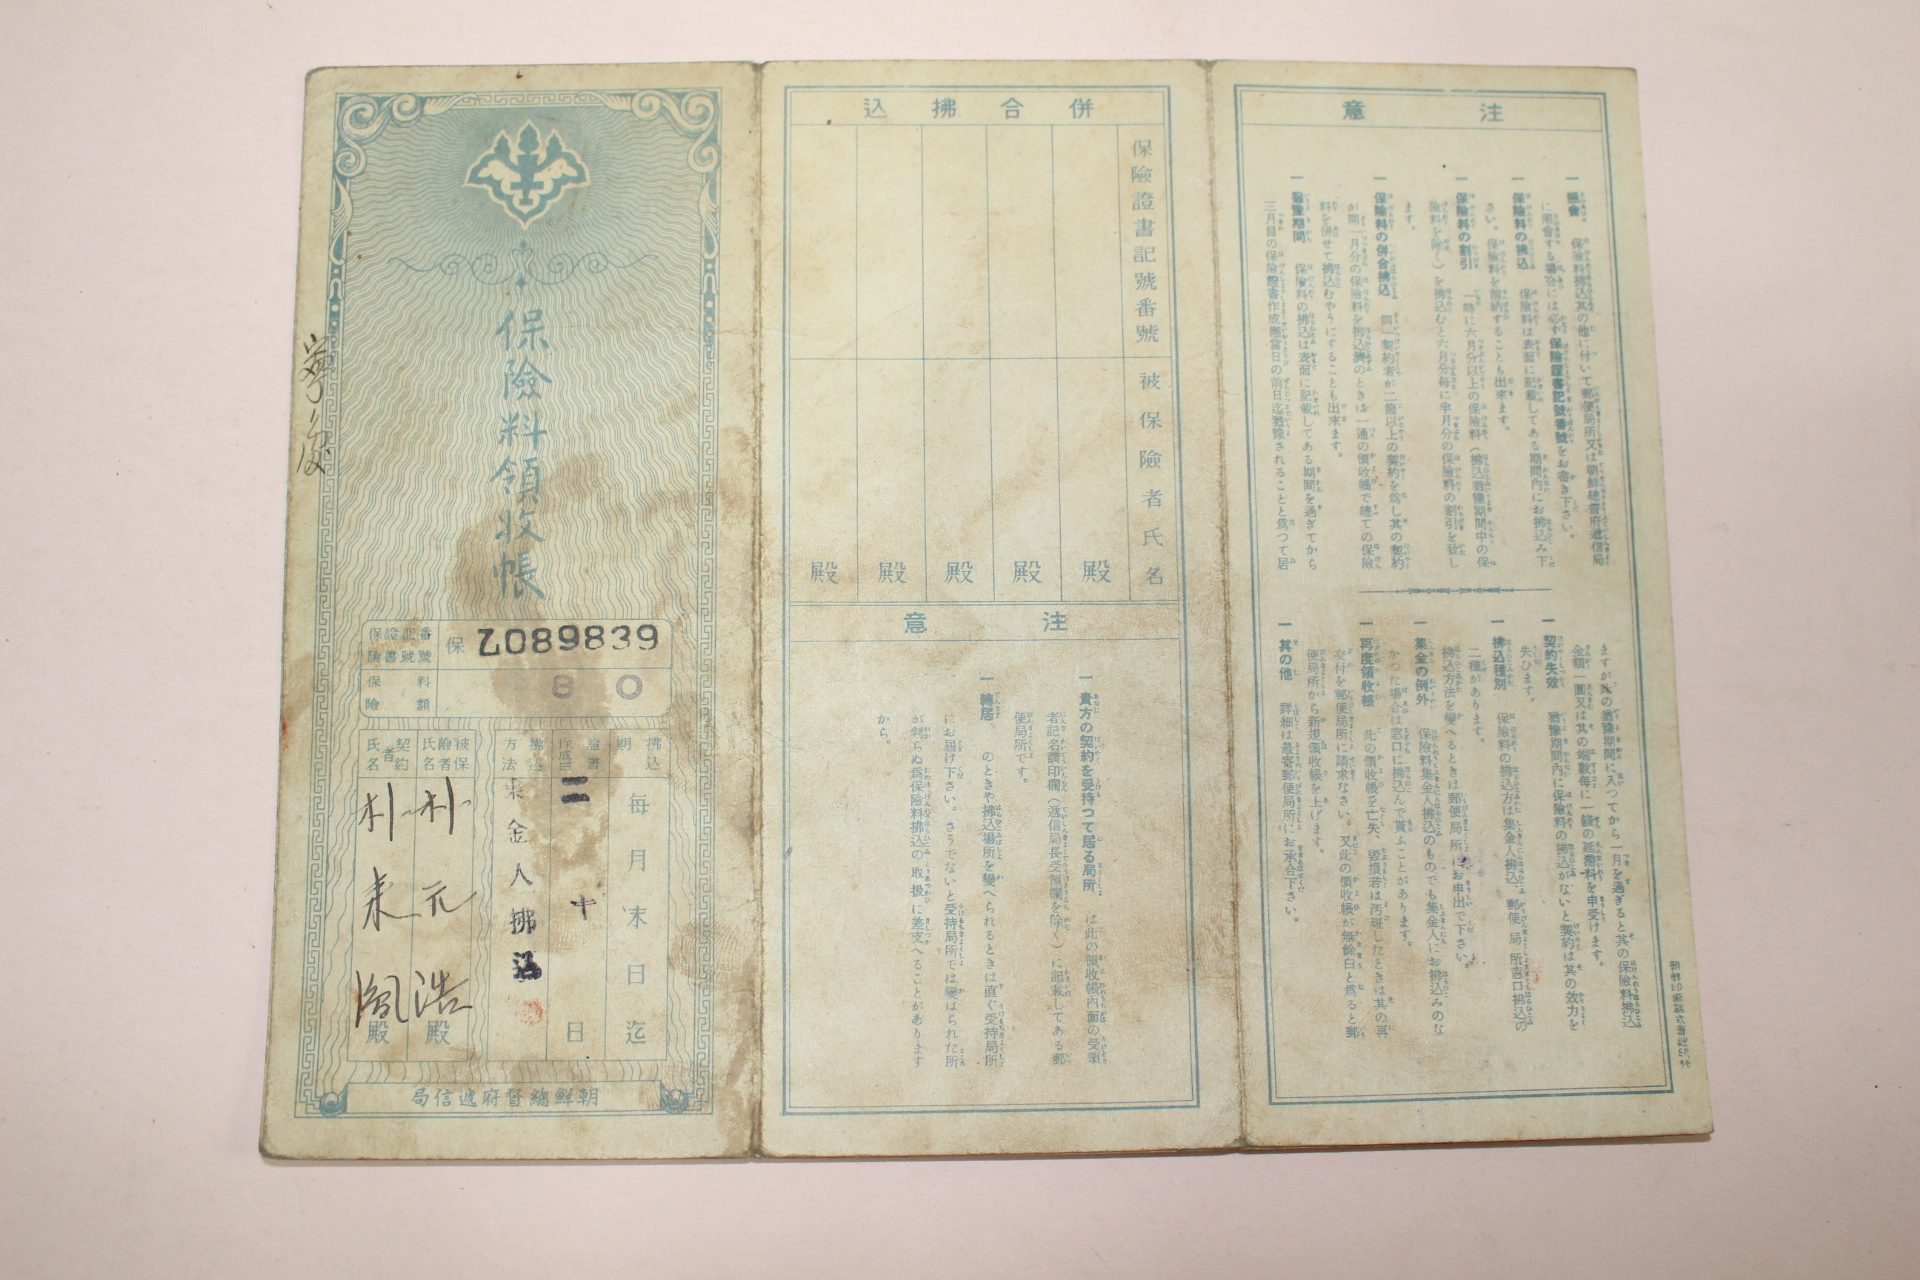 保險料領收帳
保險證書記號番號
保 Z089839
保險料額
80
拂込期
每月末日迄
證書作成日
二十日
拂込方法
集金人拂込
被保險者氏名
朴元浩殿
契約者氏名
朴来鳳殿
朝鮮總督府遞信局
併合拂込
保險證書記號番號
被保險者氏名
殿
殿
殿
殿
殿
注意
一 貴方の契約を受持つて居る局所 は此の領收帳內面の受領
者記名調印欄(遞信局長受領欄を除く)に記載してある郵
便局所です。
一 轉居 のときや拂込場所を變へられるときは直ぐ受持局所
にお屆け下さい。さうでないと受持局所では變はられた所
が判らぬ爲保險料拂込の取扱に差支へることがあります
から。
注意
一 照會 保險料拂込其の他に付いて郵便局所又は朝鮮總督府遞信局
に照會する場合には必ず保險證書記號番號をお書き下さい。
一 保險料の拂込 保險料は表面に記載してある期間內にお拂込み下
さい。保險料を前納することも出來ます。
一 保險料の割引 一時に六月分以上の保險料(拂込猶豫期間中の保
險料を除く)を拂込むと六月分每に半月分の保險料の割引を致し
ます。
一 保險料の併合拂込 同一契約者が二箇以上の契約を爲し其の契約
が同一月分の保險料を拂込濟のときは一通の領收帳で總ての保險
料を併せて拂込むやうにすることも出來ます。
一 猶豫期間 保險料の拂込は表面に記載してある期間を過ぎてから
三月目の保險證書作成應當日の前日迄猶豫されることと爲つて居
ますが此の猶豫期間に入つてから一月を過ぎると其の保險料拂込
金額一圓又は其の端數每に一錢の延滯料を申受けます。
一 契約失效 猶豫期間內に保險料の拂込がないと契約は其の效力を
失ひます。
一 拂込種別 保險料の拂込方は集金人拂込、郵便局所窓口拂込の
二種があります。
拂込方法を變へるときは郵便局所にお申出で下さい。
一 集金の例外 保險料集金人拂込のものでも集金人にお拂込みのな
かつた場合は窓口に拂込んで貰ふことがあります。
一 再度領收帳 此の領收帳を亡失、毀損若は汚斑したときは其の再
交付を郵便局所に請求なさい。又此の領收帳が無餘白と爲ると郵
便局所から新規領收帳を上げます。
一 其の他 詳細は最寄郵便局所にお承合下さい。